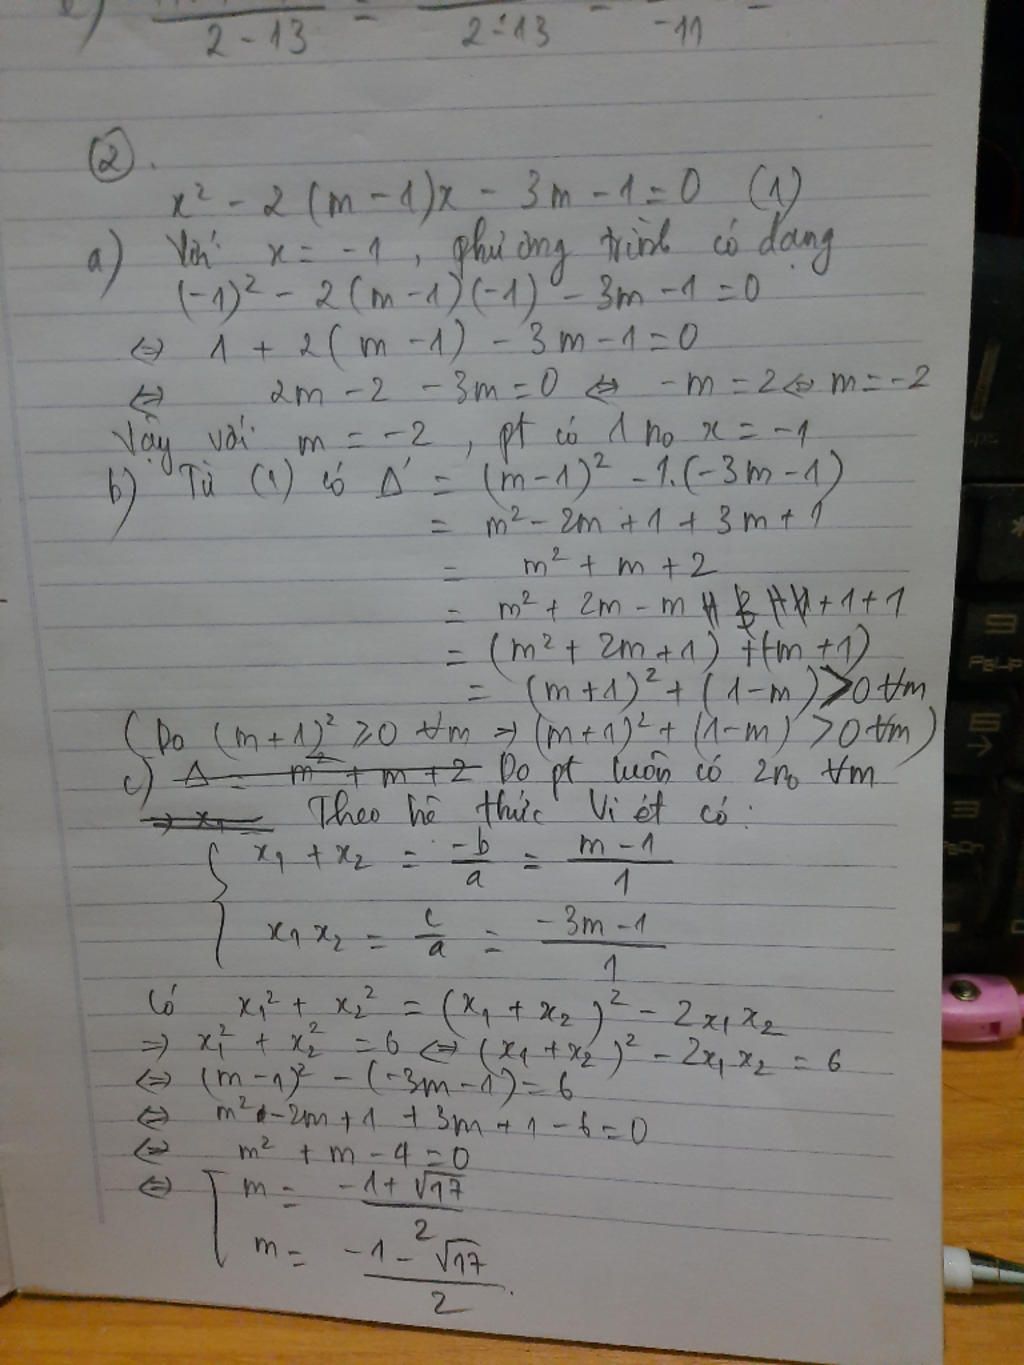 2 - 13 = 2 - 13 = -11 =
②.
x² - 2(m-1)x - 3m - 1 = 0 (1)
a) Với x = -1, phương trình có dạng
(-1)² - 2(m-1)(-1) - 3m - 1 = 0
⇔ 1 + 2(m-1) - 3m - 1 = 0
⇔ 2m - 2 - 3m = 0 ⇔ -m = 2 ⇔ m = -2
Vậy với m = -2, pt có 1 n₀ x = -1
b) Từ (1) có Δ' = (m-1)² - 1.(-3m-1)
= m² - 2m + 1 + 3m + 1
= m² + m + 2
= m² + 2m - m + 1 + 1
= (m² + 2m + 1) + (-m + 1)
= (m+1)² + (1-m) > 0 ∀m
(Do (m+1)² ≥ 0 ∀m ⇒ (m+1)² + (1-m) > 0 ∀m)
c) Δ = m² + m + 2 Do pt luôn có 2n₀ ∀m
⇒ x₁ Theo hệ thức Vi ét có:
x₁ + x₂ = -b/a = (m-1)/1
x₁x₂ = c/a = (-3m-1)/1
Có x₁² + x₂² = (x₁ + x₂)² - 2x₁x₂
⇒ x₁² + x₂² = 6 ⇔ (x₁ + x₂)² - 2x₁x₂ = 6
⇔ (m-1)² - (-3m-1) = 6
⇔ m² - 2m + 1 + 3m + 1 - 6 = 0
⇔ m² + m - 4 = 0
⇔ m = (-1 + √17)/2
m = (-1 - √17)/2